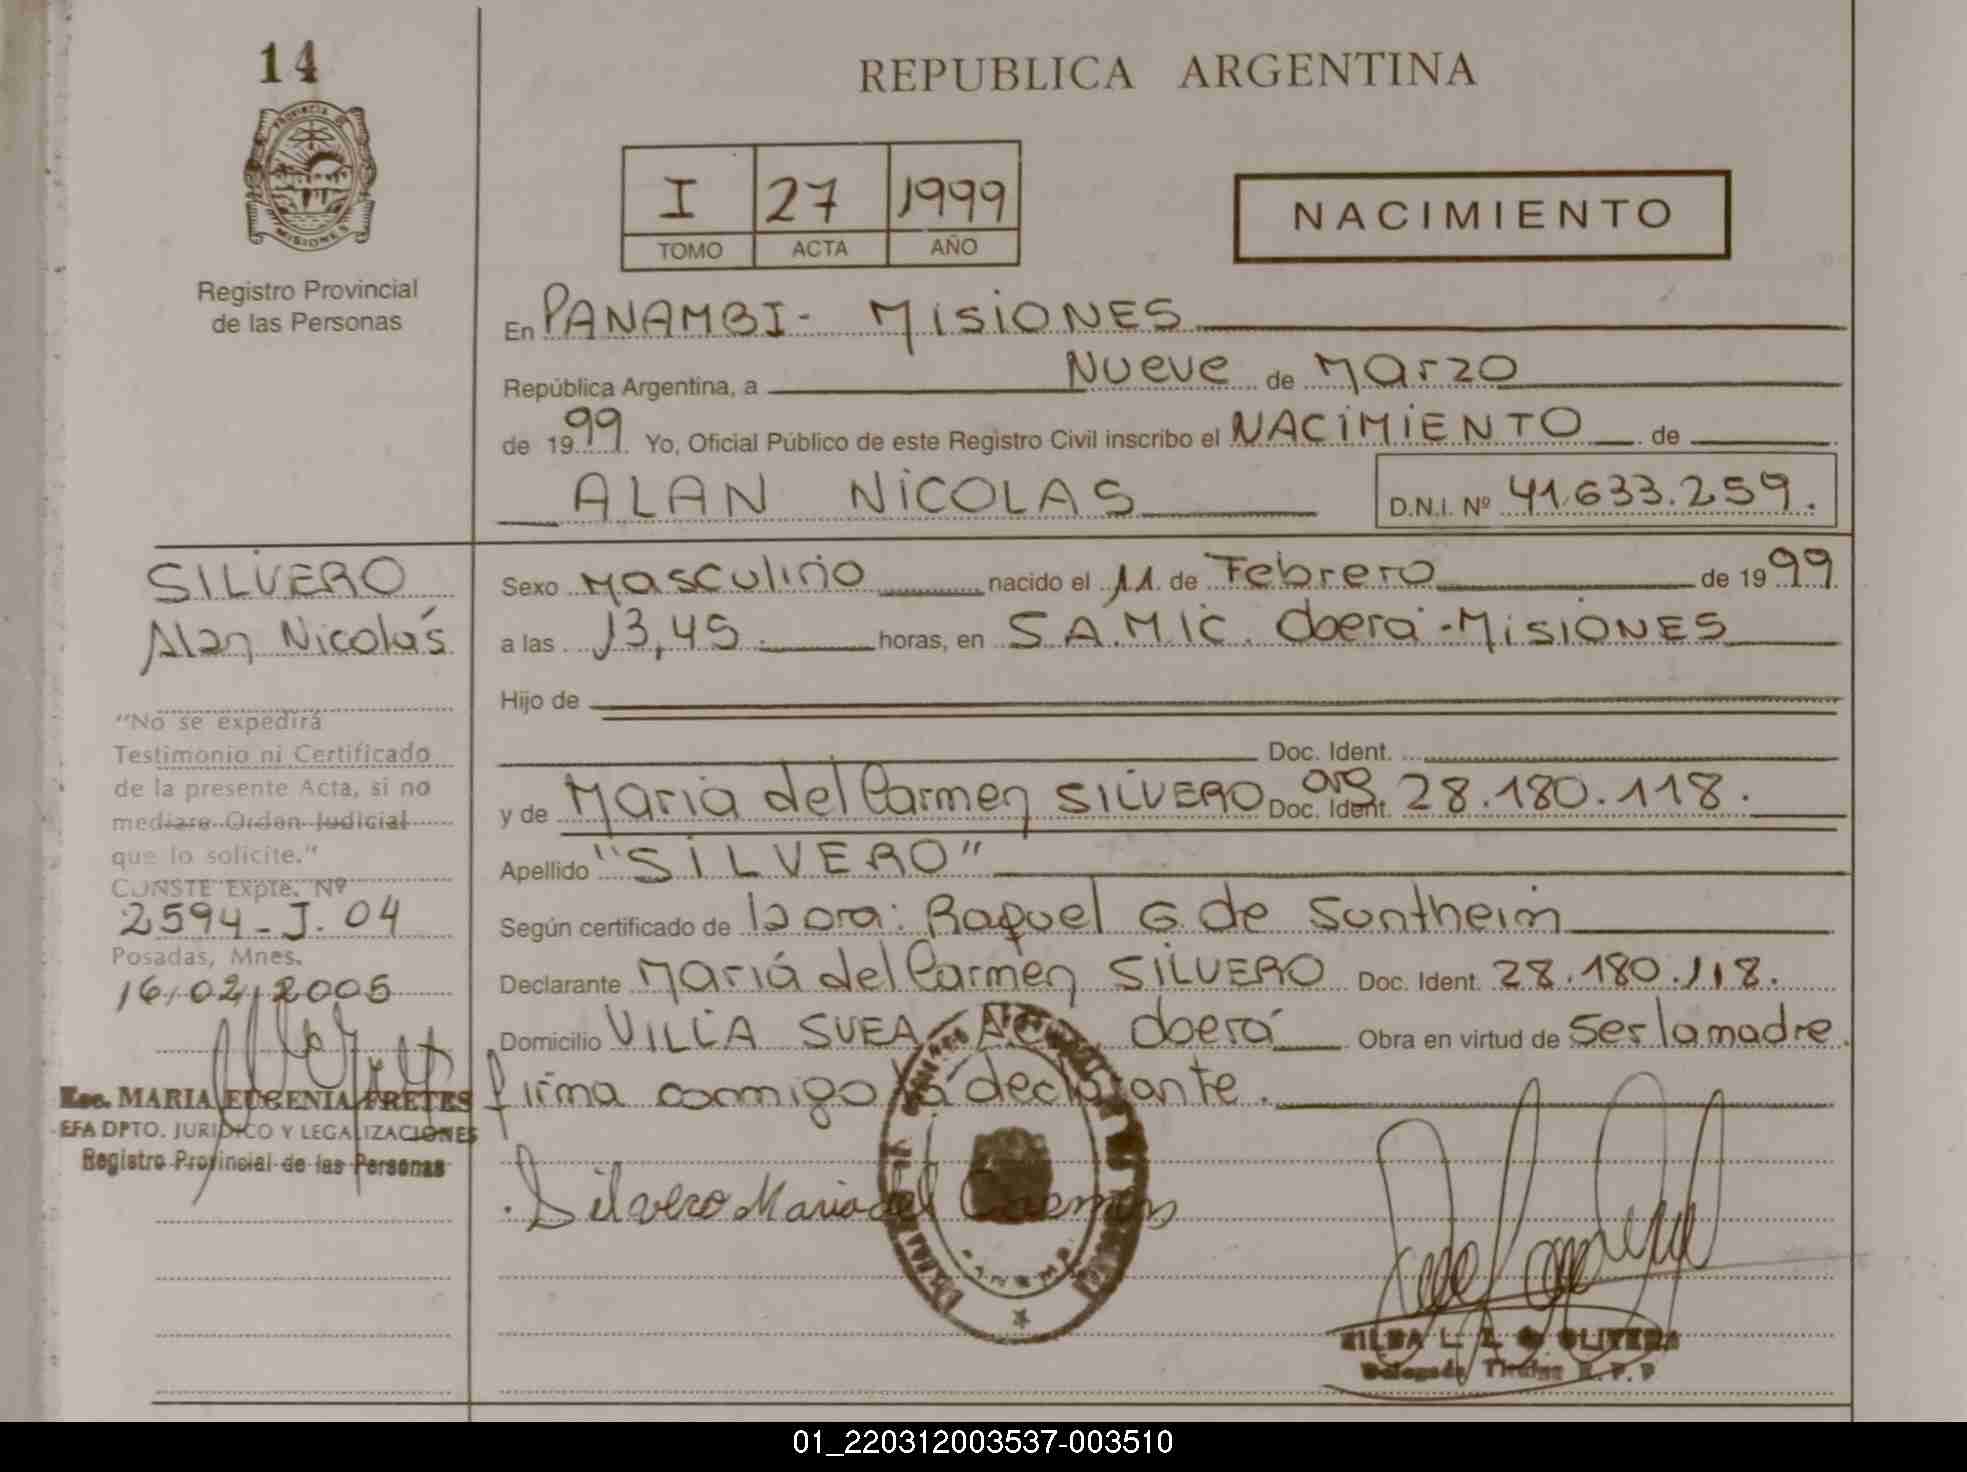 14
PROVINCIA DE
MISIONES
Registro Provincial
de las Personas
REPUBLICA ARGENTINA
I 27 1999
TOMO ACTA AÑO
NACIMIENTO
En PANAMBI - MISIONES
República Argentina, a Nueve de Marzo
de 1999 Yo, Oficial Público de este Registro Civil inscribo el NACIMIENTO de
ALAN NICOLAS D.N.I. Nº 41.633.259.
SILVERO
Alan Nicolás
"No se expedirá
Testimonio ni Certificado
de la presente Acta, si no
mediare Orden Judicial
que lo solicite."
CONSTE Expte. Nº
2594-J.04
Posadas, Mnes.
16,02,2005
Esc. MARIA EUGENIA FRETES
EFA DPTO. JURIDICO Y LEGALIZACIONES
Registro Provincial de las Personas
Sexo Masculino nacido el 11 de Febrero de 1999
a las 13,45. horas, en S.A.M.I.C. Oberá - MISIONES
Hijo de
Doc. Ident.
y de Maria del Carmen SILVERO Doc. Ident. arg 28.180.118.
Apellido "SILVERO"
Según certificado de la Dra: Raquel G. de Suntheim
Declarante Mariá del Carmen SILVERO Doc. Ident. 28.180.118.
Domicilio VILLA SUEA Oberá Obra en virtud de Ser la madre.
firma conmigo la declarante.
Silvero Maria del Carmen
L. Z. de OLIVERA
Delegada Titular R.P.P
01_220312003537-003510